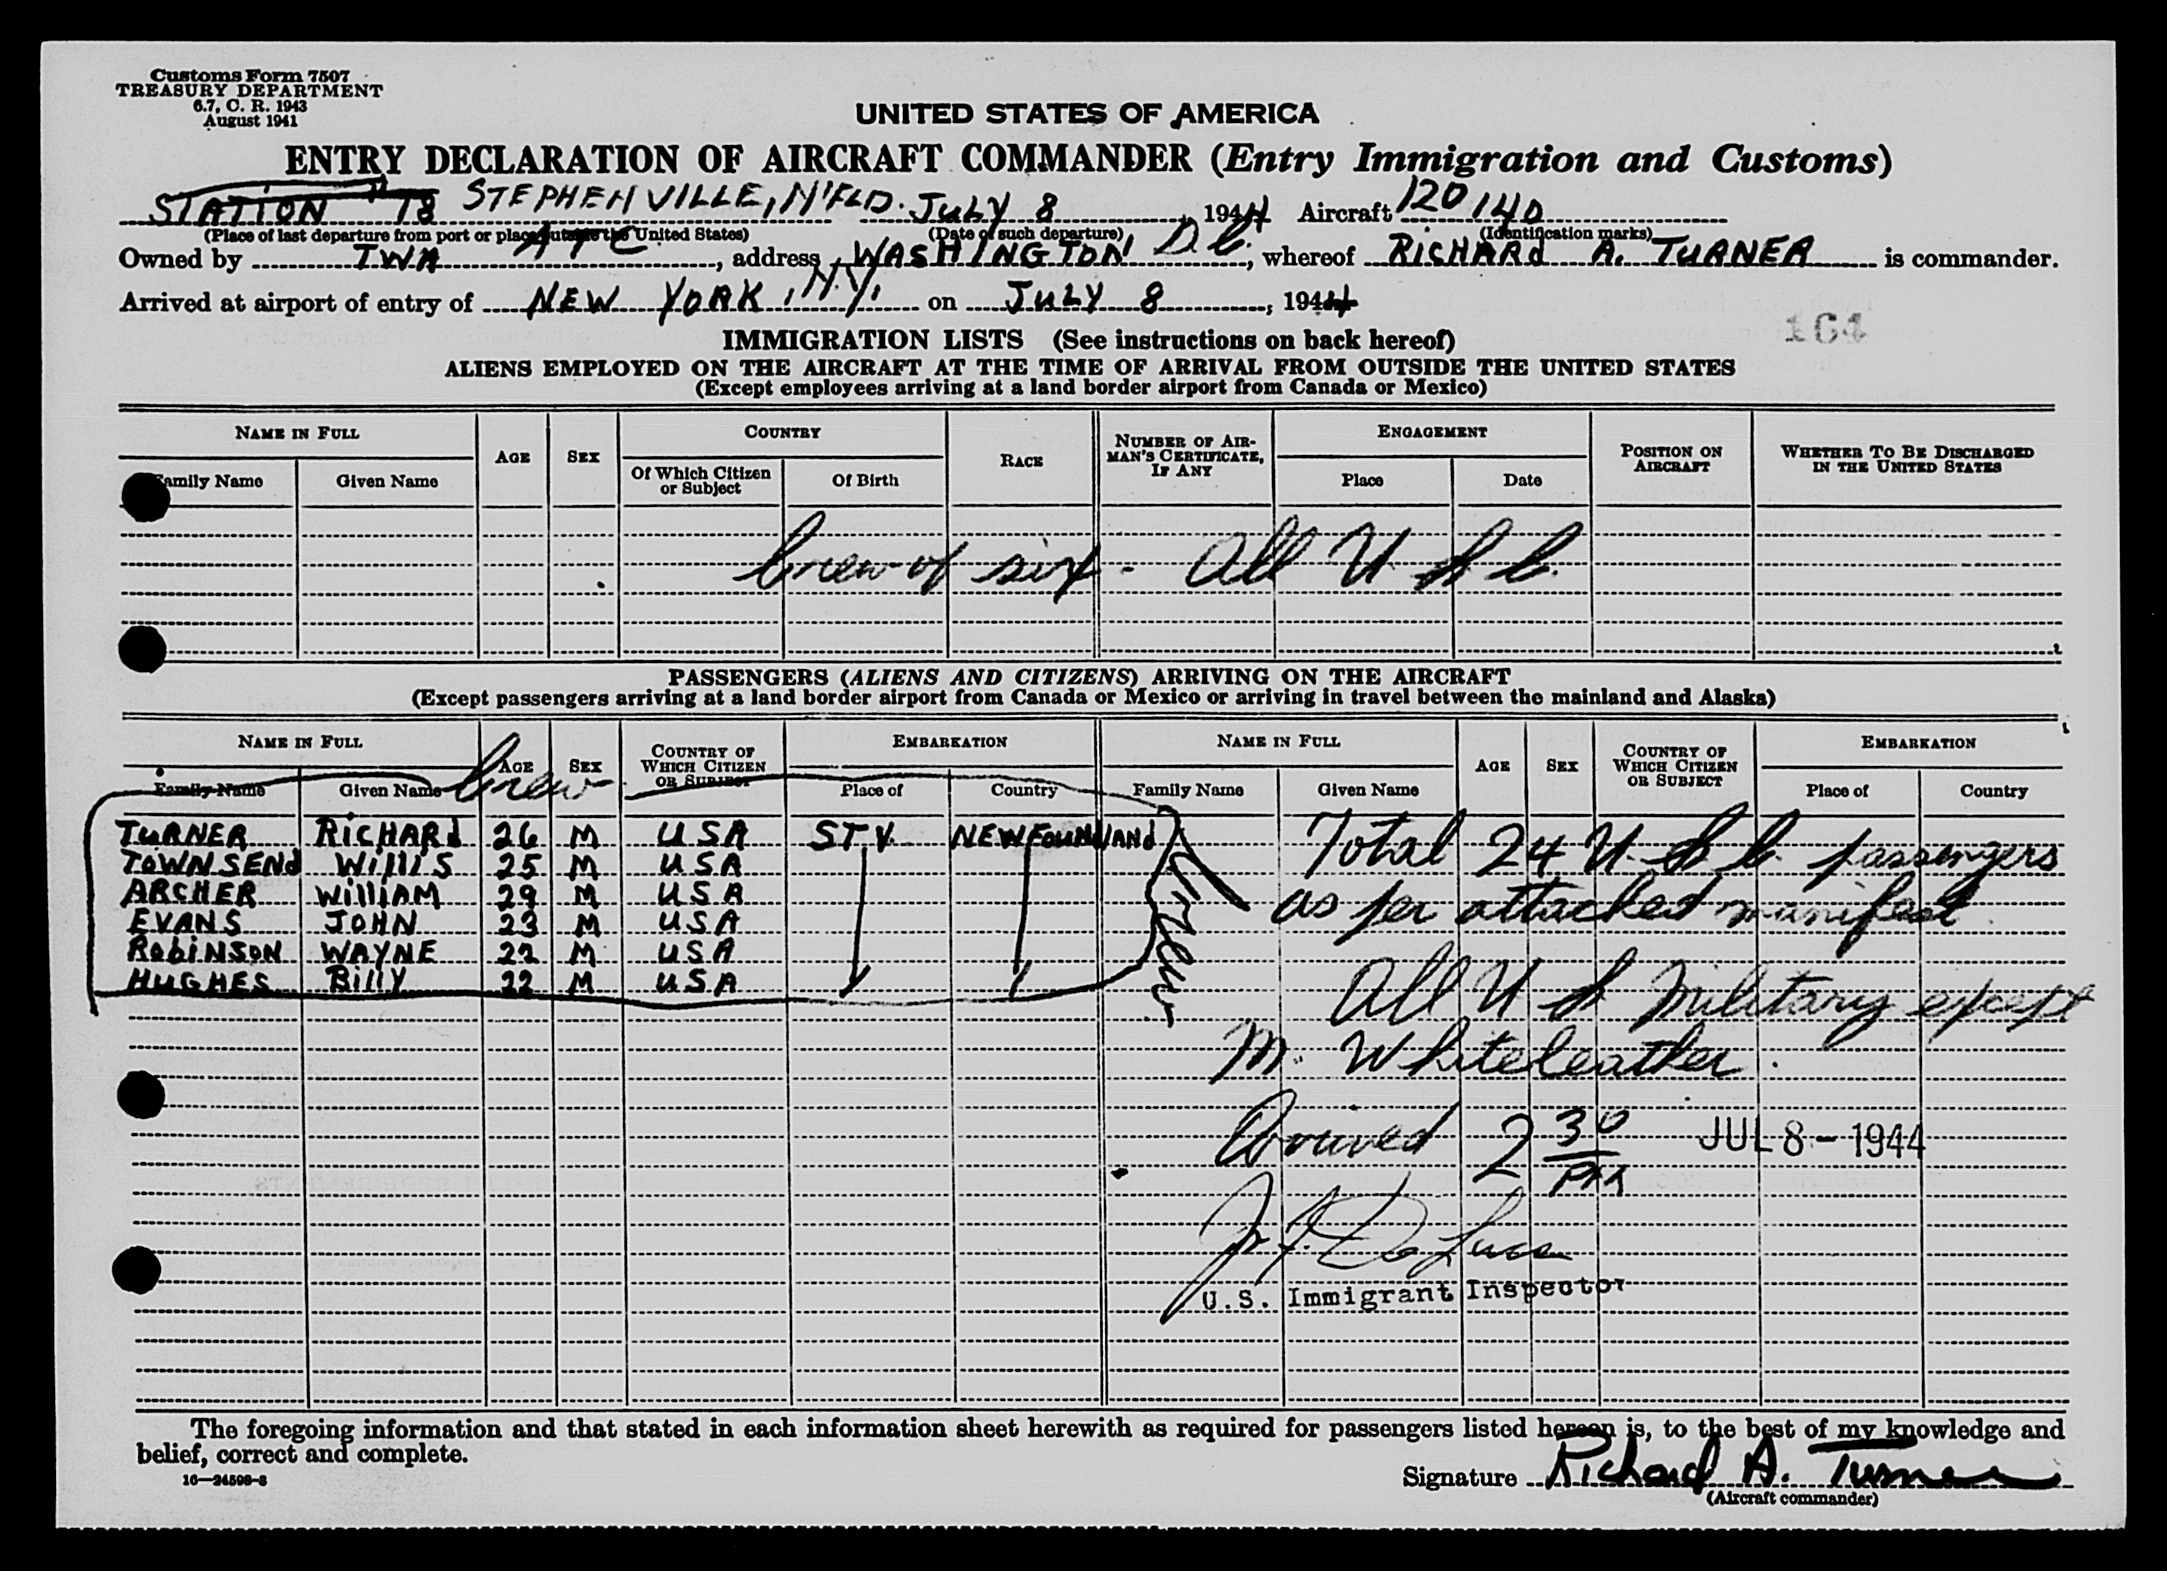 Customs Form 7507
TREASURY DEPARTMENT
6.7, C. R. 1943
August 1941
UNITED STATES OF AMERICA
ENTRY DECLARATION OF AIRCRAFT COMMANDER (Entry Immigration and Customs)
STATION 78 STEPHENVILLE, N'FLD. JULY 8, 1944 Aircraft 120140
(Place of last departure from port or place outside the United States) (Date of such departure) (Identification marks)
Owned by TWA ATC, address WASHINGTON D.C., whereof RICHARd A. TURNER is commander.
Arrived at airport of entry of NEW YORK, N.Y. on JULY 8, 1944
164
IMMIGRATION LISTS (See instructions on back hereof)
ALIENS EMPLOYED ON THE AIRCRAFT AT THE TIME OF ARRIVAL FROM OUTSIDE THE UNITED STATES
(Except employees arriving at a land border airport from Canada or Mexico)
NAME IN FULL AGE SEX COUNTRY RACE NUMBER OF AIRMAN'S CERTIFICATE, IF ANY ENGAGEMENT POSITION ON AIRCRAFT WHETHER TO BE DISCHARGED IN THE UNITED STATES
Family Name Given Name Of Which Citizen or Subject Of Birth Place Date
Crew of six - All U S C.
PASSENGERS (ALIENS AND CITIZENS) ARRIVING ON THE AIRCRAFT
(Except passengers arriving at a land border airport from Canada or Mexico or arriving in travel between the mainland and Alaska)
NAME IN FULL AGE SEX COUNTRY OF WHICH CITIZEN OR SUBJECT EMBARKATION NAME IN FULL AGE SEX COUNTRY OF WHICH CITIZEN OR SUBJECT EMBARKATION
Family Name Given Name Place of Country Family Name Given Name Place of Country
Crew
TURNER RICHARd 26 M USA STV. NEWFOUNdlANd
TOWNSENd WillIS 25 M USA
ARCHER WILLIAM 29 M USA
EVANS JOHN 23 M USA
RobINSON WAYNE 22 M USA
HUGHES BillY 22 M USA
Crew
Total 24 U S C. passengers
as per attached manifest
All U S Military except
M. Whiteleather.
Arrived 2 30 PM JUL 8 - 1944
U.S. Immigrant Inspector
The foregoing information and that stated in each information sheet herewith as required for passengers listed hereon is, to the best of my knowledge and
belief, correct and complete.
16—24598-3
Signature Richard A. Turner
(Aircraft commander)